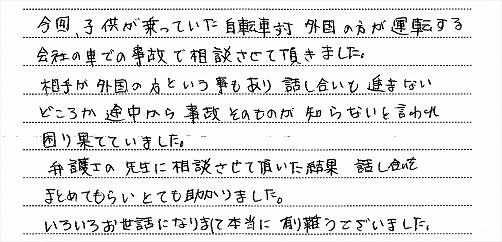 今回、子供が乗っていた自転車対 外国の方が運転する
会社の車での事故で相談させて頂きました。
相手が外国の方という事もあり 話し合いも進まない
どころか 途中から事故そのものが知らないと言われ
困り果てていました。
弁護士の先生に相談させて頂いた結果 話し合いを
まとめてもらいとても助かりました。
いろいろお世話になりまして本当に有り難うございました。